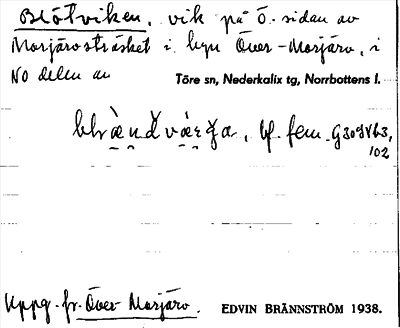 Blötviken, vik på Ö. sidan av
Morjärvsträsket i byn Över-Morjärv, i
NO delen av Töre sn, Nederkalix tg, Norrbottens l.
bf. fem. G309963,
102
Uppg. fr. Över Morjärv. EDVIN BRÄNNSTRÖM 1938.